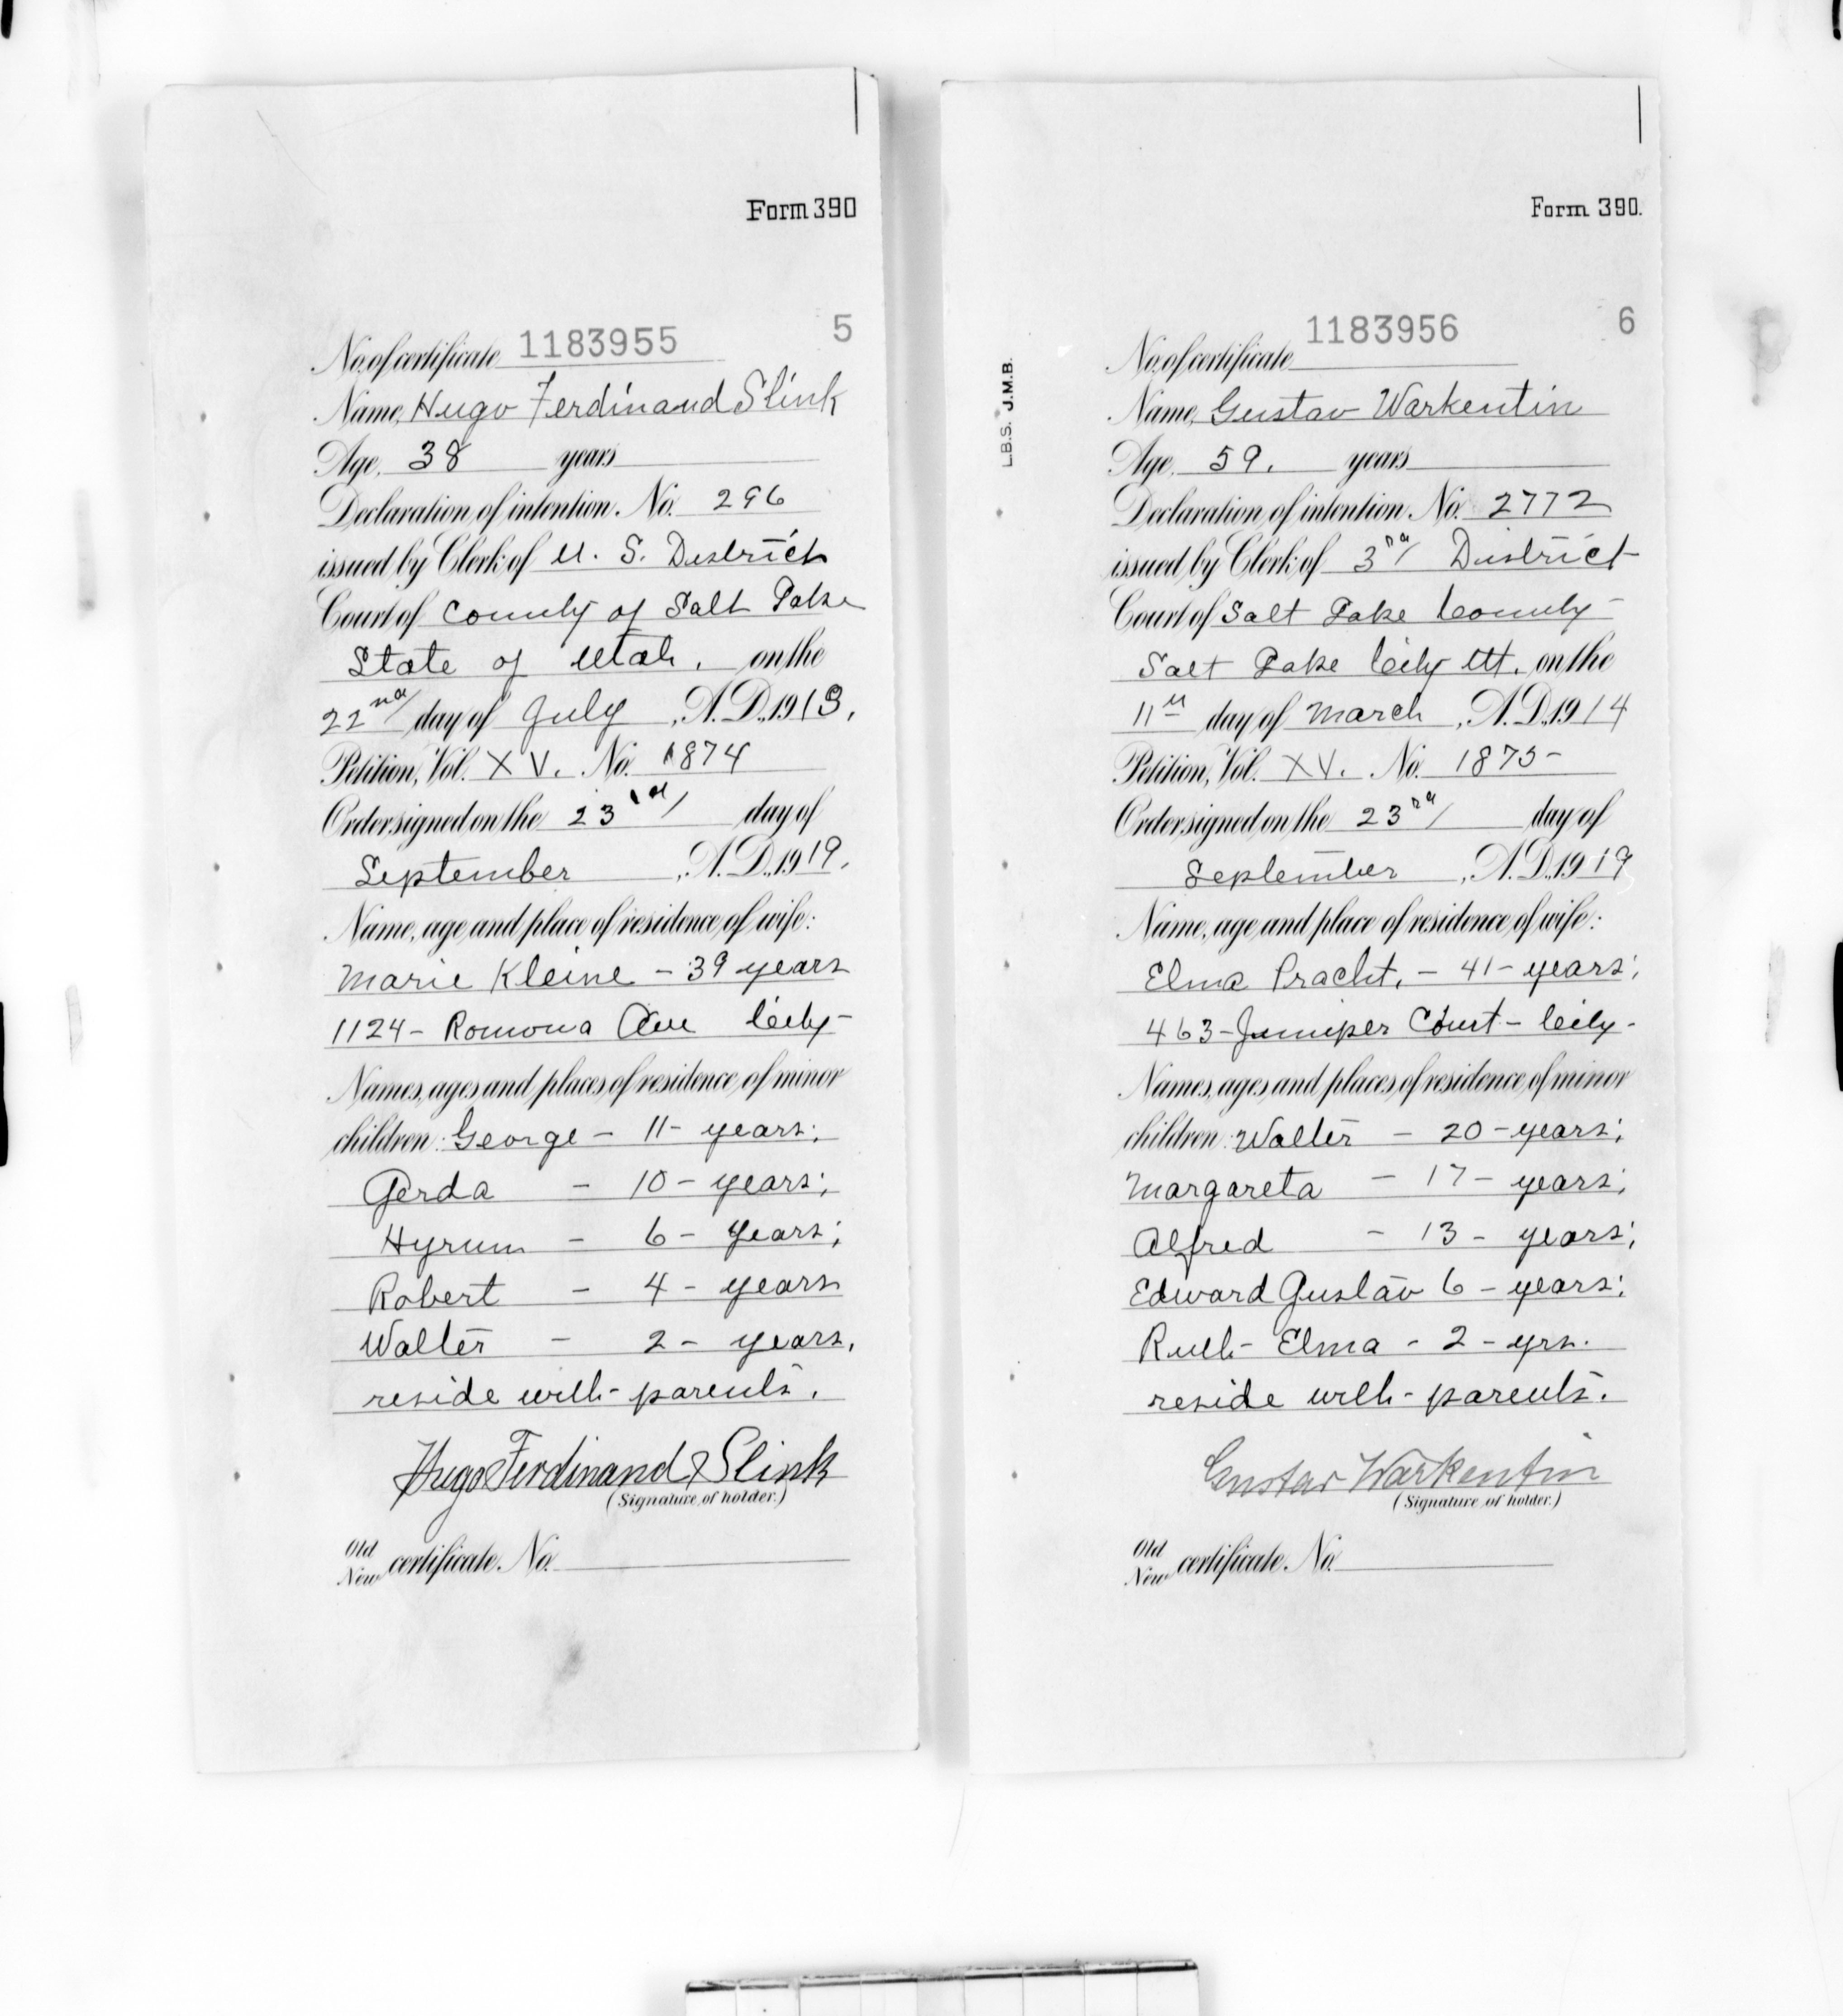 Form 390
5
No. of certificate 1183955
Name, Hugo Ferdinand Slink
Age, 38 years
Declaration of intention, No. 296
issued by Clerk of U. S. District
Court of County of Salt Lake
State of Utah. on the
22nd day of July, A.D., 1913.
Petition, Vol. XV. No. 1874
Order signed on the 23rd day of
September, A.D., 1919.
Name, age and place of residence of wife:
Marie Kleine - 39 years
1124 - Romona Ave City -
Names, ages and places of residence of minor
children: George - 11 - years;
Gerda - 10 - years;
Hyrum - 6 - years;
Robert - 4 - years
Walter - 2 - years.
reside with - parents.
Hugo Ferdinand Slink
(Signature of holder.)
Old
New certificate, No.
L.B.S. J.M.B.
Form 390.
6
No. of certificate 1183956
Name, Gustav Warkentin
Age, 59. years
Declaration of intention, No. 2772
issued by Clerk of 3rd District
Court of Salt Lake County -
Salt Lake City Ut. on the
11th day of March, A.D., 1914
Petition, Vol. XV. No. 1875 -
Order signed on the 23rd day of
September, A.D., 1919
Name, age and place of residence of wife:
Elma Pracht, - 41 - years;
463 - Juniper Court - City -
Names, ages and places of residence of minor
children: Walter - 20 - years;
Margareta - 17 - years;
Alfred - 13 - years;
Edward Gustav 6 - years;
Ruth - Elma - 2 - yrs.
reside with - parents.
Gustav Warkentin
(Signature of holder.)
Old
New certificate, No.